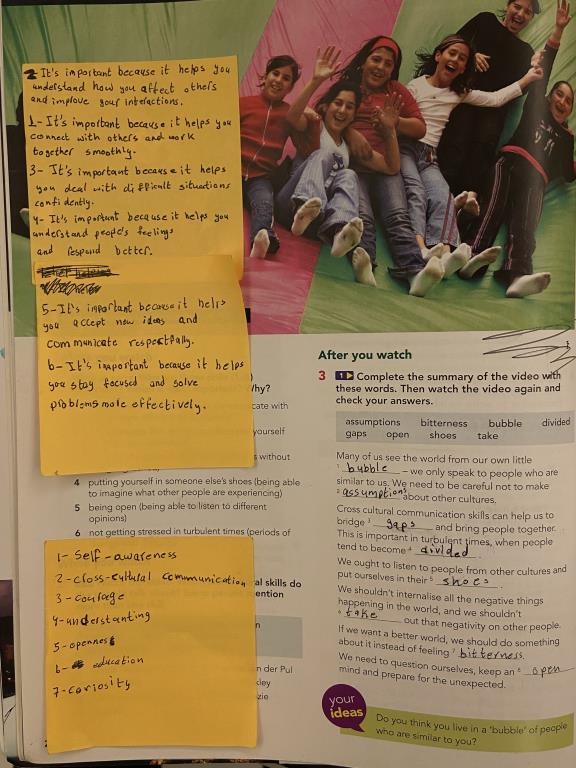 2- It's important because it helps you
understand how you affect others
and improve your interactions.
1- It's important because it helps you
connect with others and work
together smoothly.
3- It's important because it helps
you deal with difficult situations
confidently.
4- It's important because it helps you
understand people's feelings
and respond better.
5- It's important because it helps
you accept new ideas and
communicate respectfally.
6- It's important because it helps
you stay focused and solve
problems mole effectively.
Why?
cate with
yourself
s without
4 putting yourself in someone else's shoes (being able
to imagine what other people are experiencing)
5 being open (being able to listen to different
opinions)
6 not getting stressed in turbulent times (periods of
1- Self-awareness
2- closs-cultural communication
3- coulage
4- understanting
5- opennest
6- education
7- cariosity
al skills do
ention
n der Pul
kley
zie
After you watch
3 1 Complete the summary of the video with
these words. Then watch the video again and
check your answers.
assumptions bitterness bubble divided
gaps open shoes take
Many of us see the world from our own little
1 bubble – we only speak to people who are
similar to us. We need to be careful not to make
2 assumptions about other cultures.
Cross cultural communication skills can help us to
bridge 3 gaps and bring people together.
This is important in turbulent times, when people
tend to become 4 divided.
We ought to listen to people from other cultures and
put ourselves in their 5 shoes.
We shouldn't internalise all the negative things
happening in the world, and we shouldn't
6 take out that negativity on other people.
If we want a better world, we should do something
about it instead of feeling 7 bitterness.
We need to question ourselves, keep an 8 open
mind and prepare for the unexpected.
your
ideas
Do you think you live in a 'bubble' of people
who are similar to you?